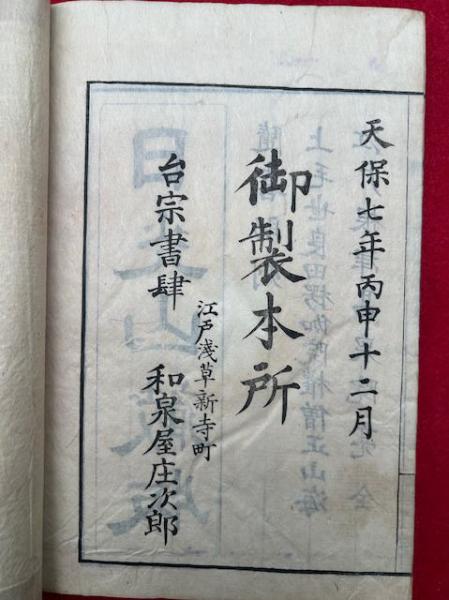 天保七年丙申十二月
御製本所
江戸淺草新寺町
台宗書肆 和泉屋庄次郎